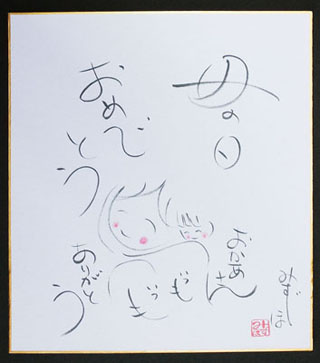 母の日
おめで
とう
おかあさん
ありがとう
みずほ